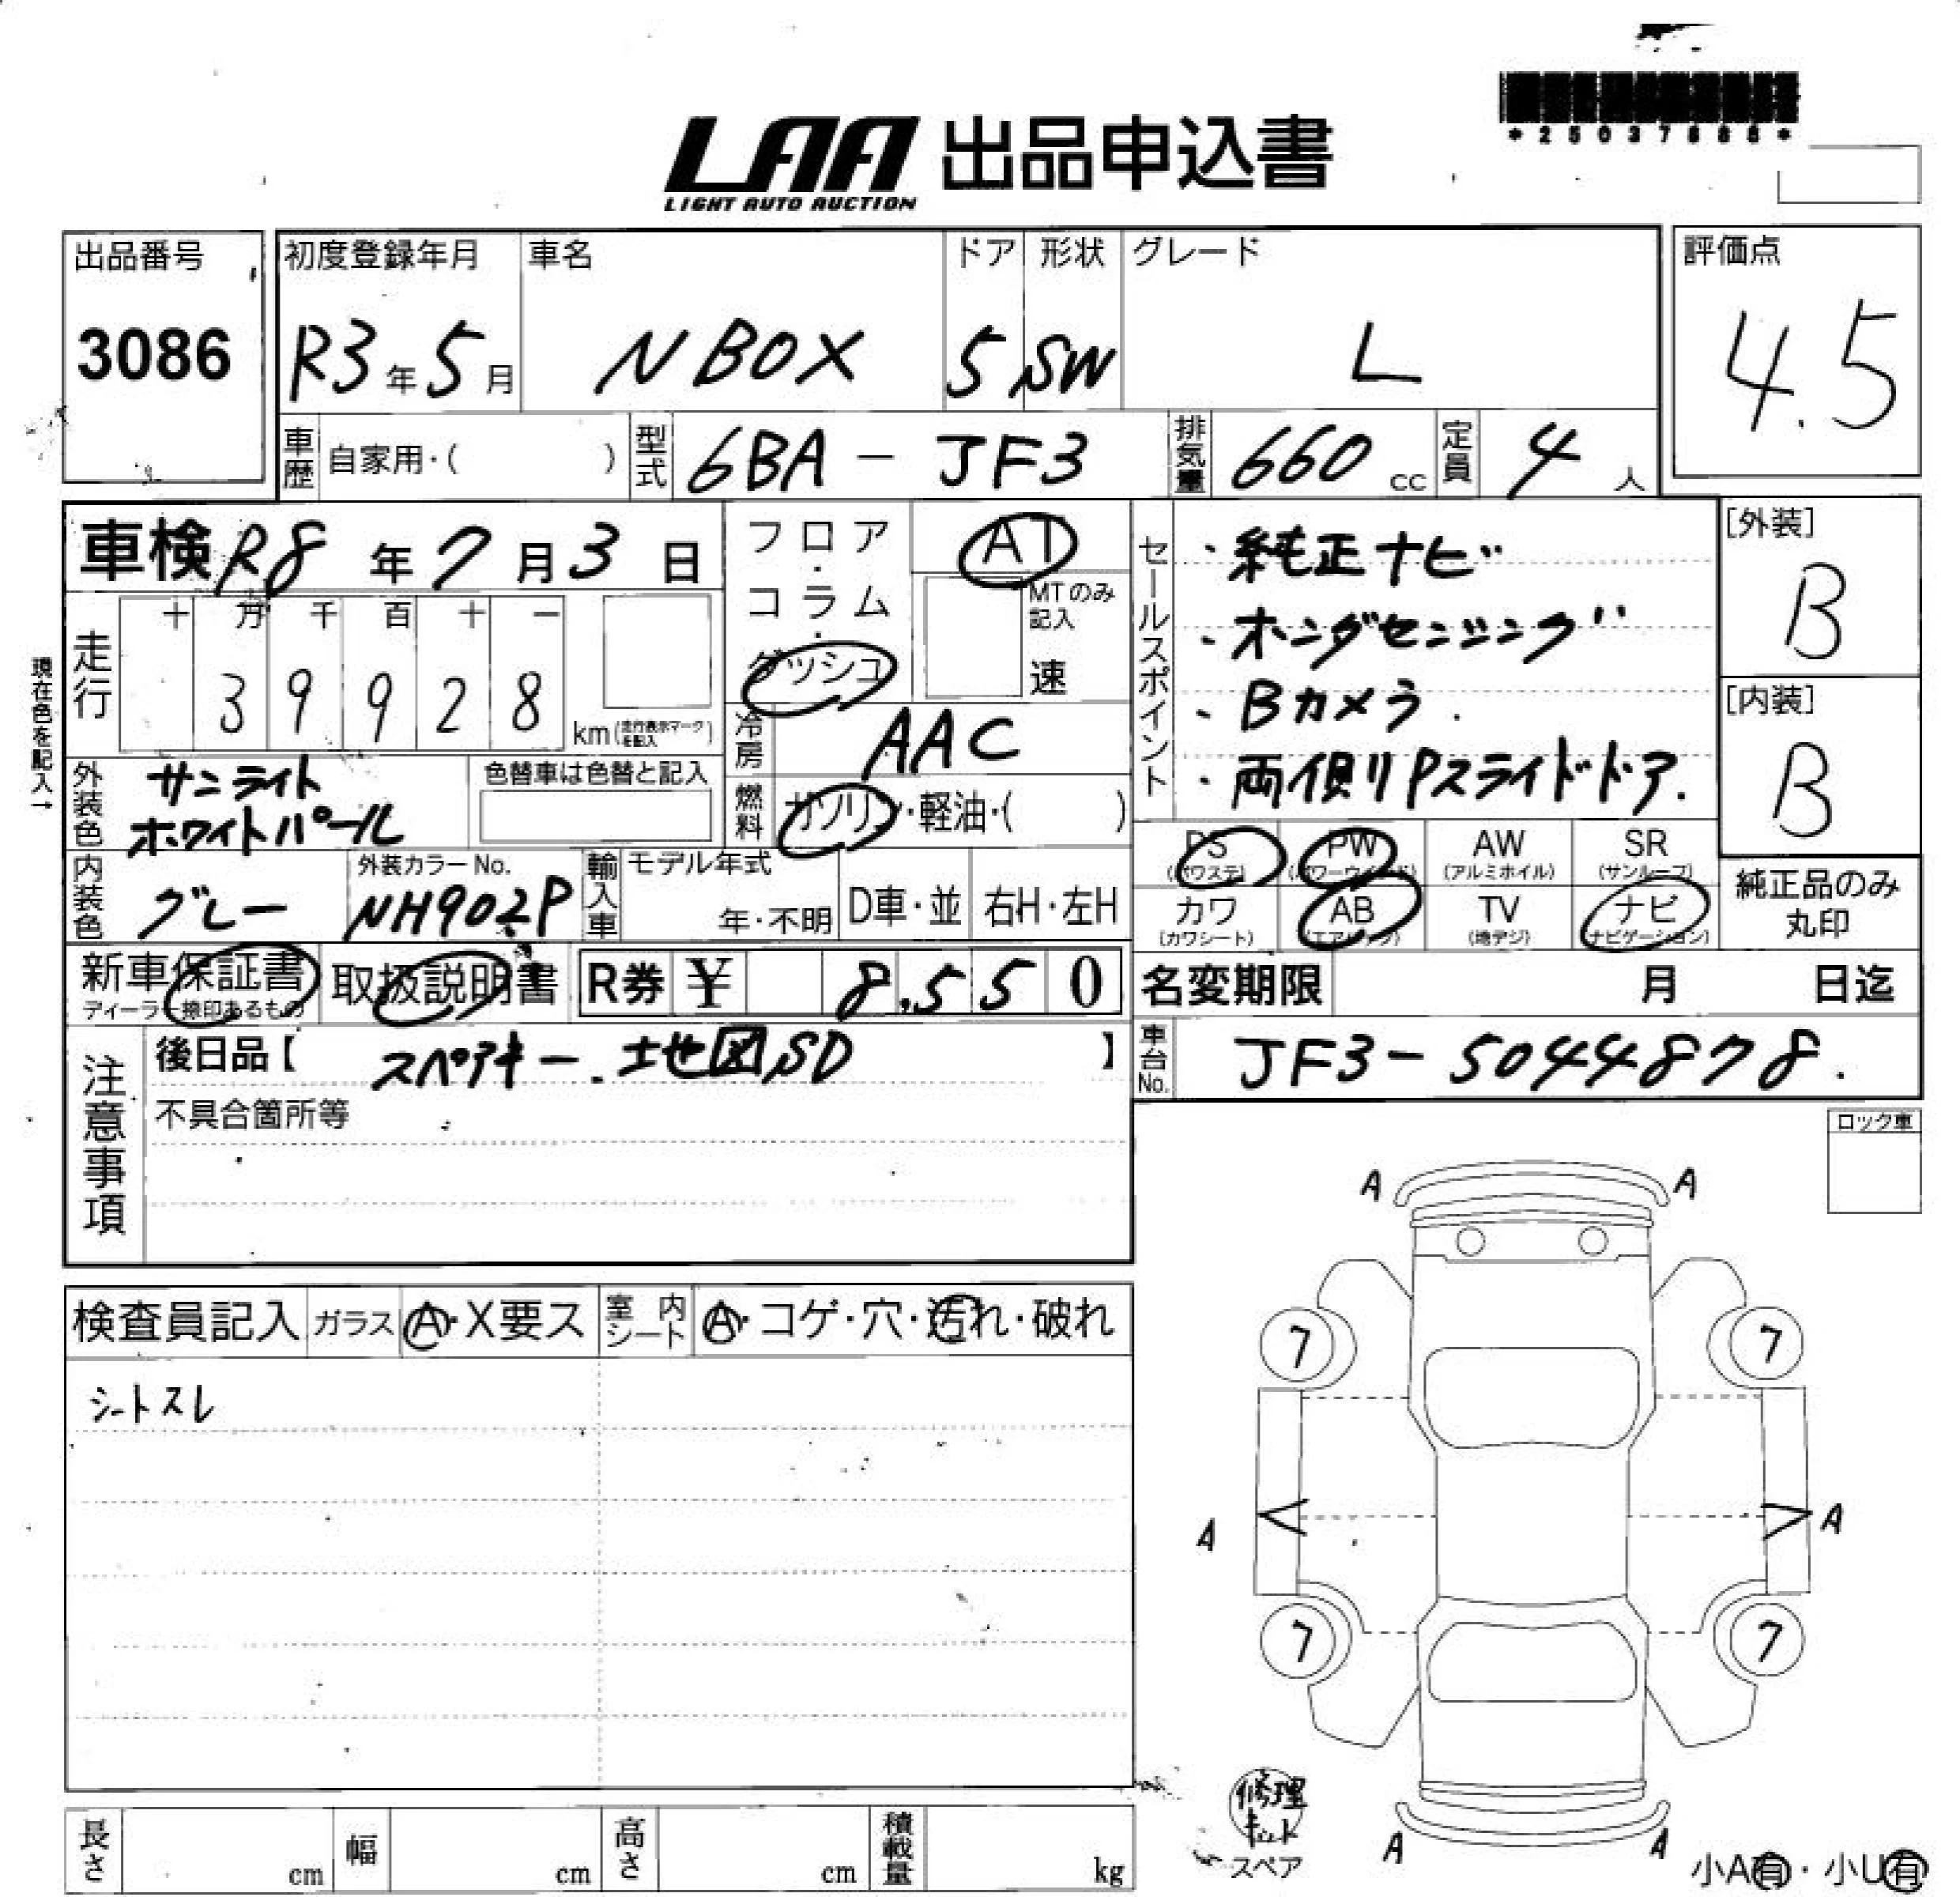 LAA 出品申込書
LIGHT AUTO AUCTION
出品番号
3086
初度登録年月
R3年5月
車名
N BOX
ドア
5
形状
SW
グレード
L
評価点
4.5
車歴 自家用・( )
型式 6BA - JF3
排気量 660 cc
定員 4 人
車検 R8年7月3日
フロア・コラム・ダッシュ
AT
MTのみ記入
速
セールスポイント
・純正ナビ
・ホンダセンシング
・Bカメラ.
・両側Pスライドドア.
[外装]
B
[内装]
B
現在色を記入→
走行
十 万 千 百 十 一
3 9 9 2 8
km(走行表示マークを記入)
冷房 AAC
外装色 サンライト
ホワイトパール
色替車は色替と記入
燃料 ガソリン・軽油・( )
PS (パワステ)
PW (パワーウインド)
AW (アルミホイル)
SR (サンルーフ)
カワ (カワシート)
AB (エアバッグ)
TV (地デジ)
ナビ (ナビゲーション)
純正品のみ
丸印
内装色 グレー
外装カラーNo.
NH902P
輸入車
モデル年式
年・不明
D車・並
右H・左H
新車保証書
ディーラー捺印あるもの
取扱説明書
R券 ¥ 8,550
名変期限 月 日迄
注意事項
後日品【 スペアキー. 地図SD 】
不具合箇所等
車台No. JF3-5044878.
ロック車
検査員記入
ガラス A・X要ス
室内シート A・コゲ・穴・汚れ・破れ
シートスレ
A A
7 7
A A
7 7
修理キット
スペア
A A
小A有・小U有
長さ cm
幅 cm
高さ cm
積載量 kg